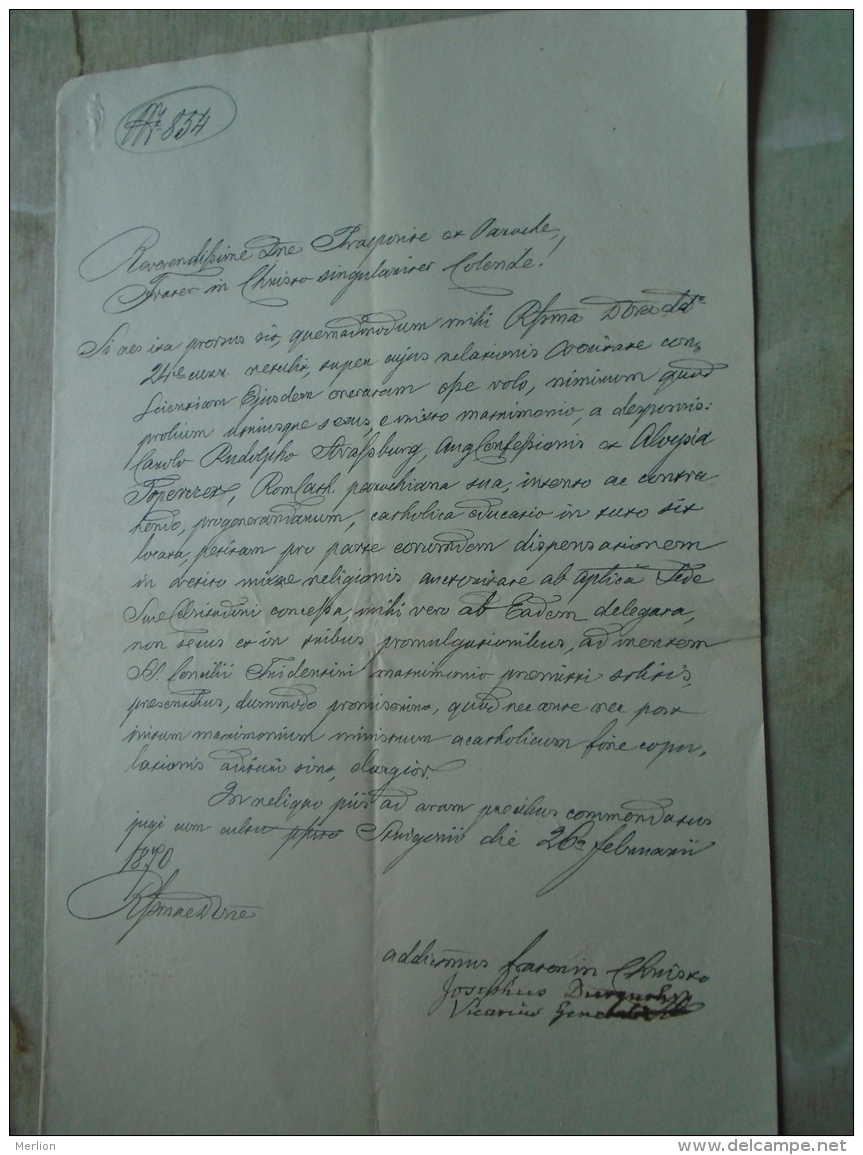 Nr 854
Reverendissime Dne Praeposite et Paroche,
Frater in Christo singulariter Colende!
Si res ita prorsus sit, quemadmodum mihi Rssma Dtio dato
24ta curr. retulit, super cujus relationis veritate con,
scientiam Ejusdem oneratam esse volo, nimirum quod
prolium utriusque sexus, e mixto matrimonio, a desponsis:
Carolo Rudolpho Strassburg, Aug Confessionis et Aloysia
Toperczer, Rom Cath. parochiana sua, intento ac contra
hendo, progenerandarum, catholica educatio in tuto sit
locata, petitam pro parte eorumdem dispensationem
in vetito mixtae religionis auctoritate ab Aptica Sede
Suae Celsitudini concessa, mihi vero ab Eadem delegata,
non secus et in tribus promulgationibus, ad mentem
S. Concilii Tridentini matrimonio praemitti solitis,
praesentibus, dummodo promiserint, quod nec ante nec post
initum matrimonium ministrum acatholicum fine copu,
lationis adituri sint, elargior.
In reliquo piis ad aram precibus commendatus
jugi cum cultu persto Strigonii die 26a Februarii
1870.
Rssmae Dnis
addictmus frater in Christo
Josephus
Vicarius Generalis
Merlion
www.delcampe.net